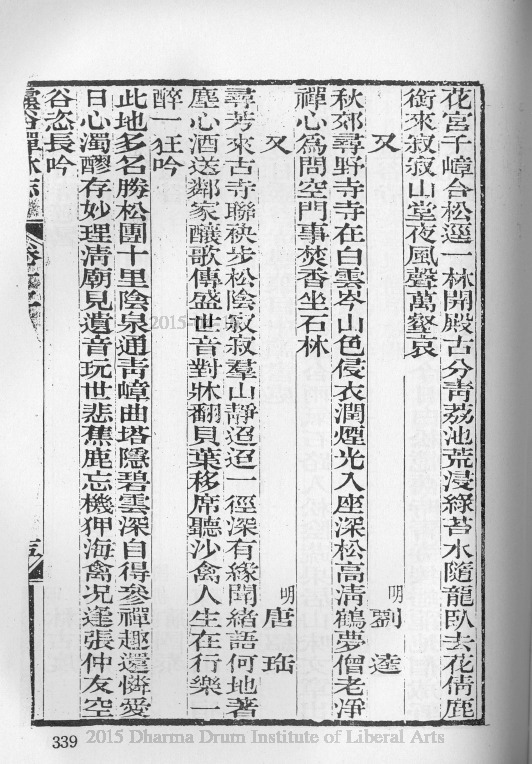 花宮千嶂合松逕一林開殿古分靑荔池荒浸綠苔水隨龍臥去花倩鹿
銜來寂寂山堂夜風聲萬壑哀
又 明 劉逵
秋郊尋野寺寺在白雲岑山色侵衣潤煙光入座深松高淸鶴夢僧老淨
禪心爲問空門事焚香坐石林
又 明 唐珤
尋芳來古寺聯袂步松陰寂寂羣山靜迢迢一徑深有緣聞緖語何地著
塵心酒送鄰家釀歌傳盛世音對牀翻貝葉移席聽沙禽人生在行樂一
醉一狂吟
此地多名勝松團十里陰泉通靑嶂曲塔隱碧雲深自得參禪趣還憐愛
日心濁醪存妙理淸廟見遺音玩世悲蕉鹿忘機狎海禽况逢張仲友空
谷恣長吟
靈谷禪林志 卷十 五
339
2015 Dharma Drum Institute of Liberal Arts